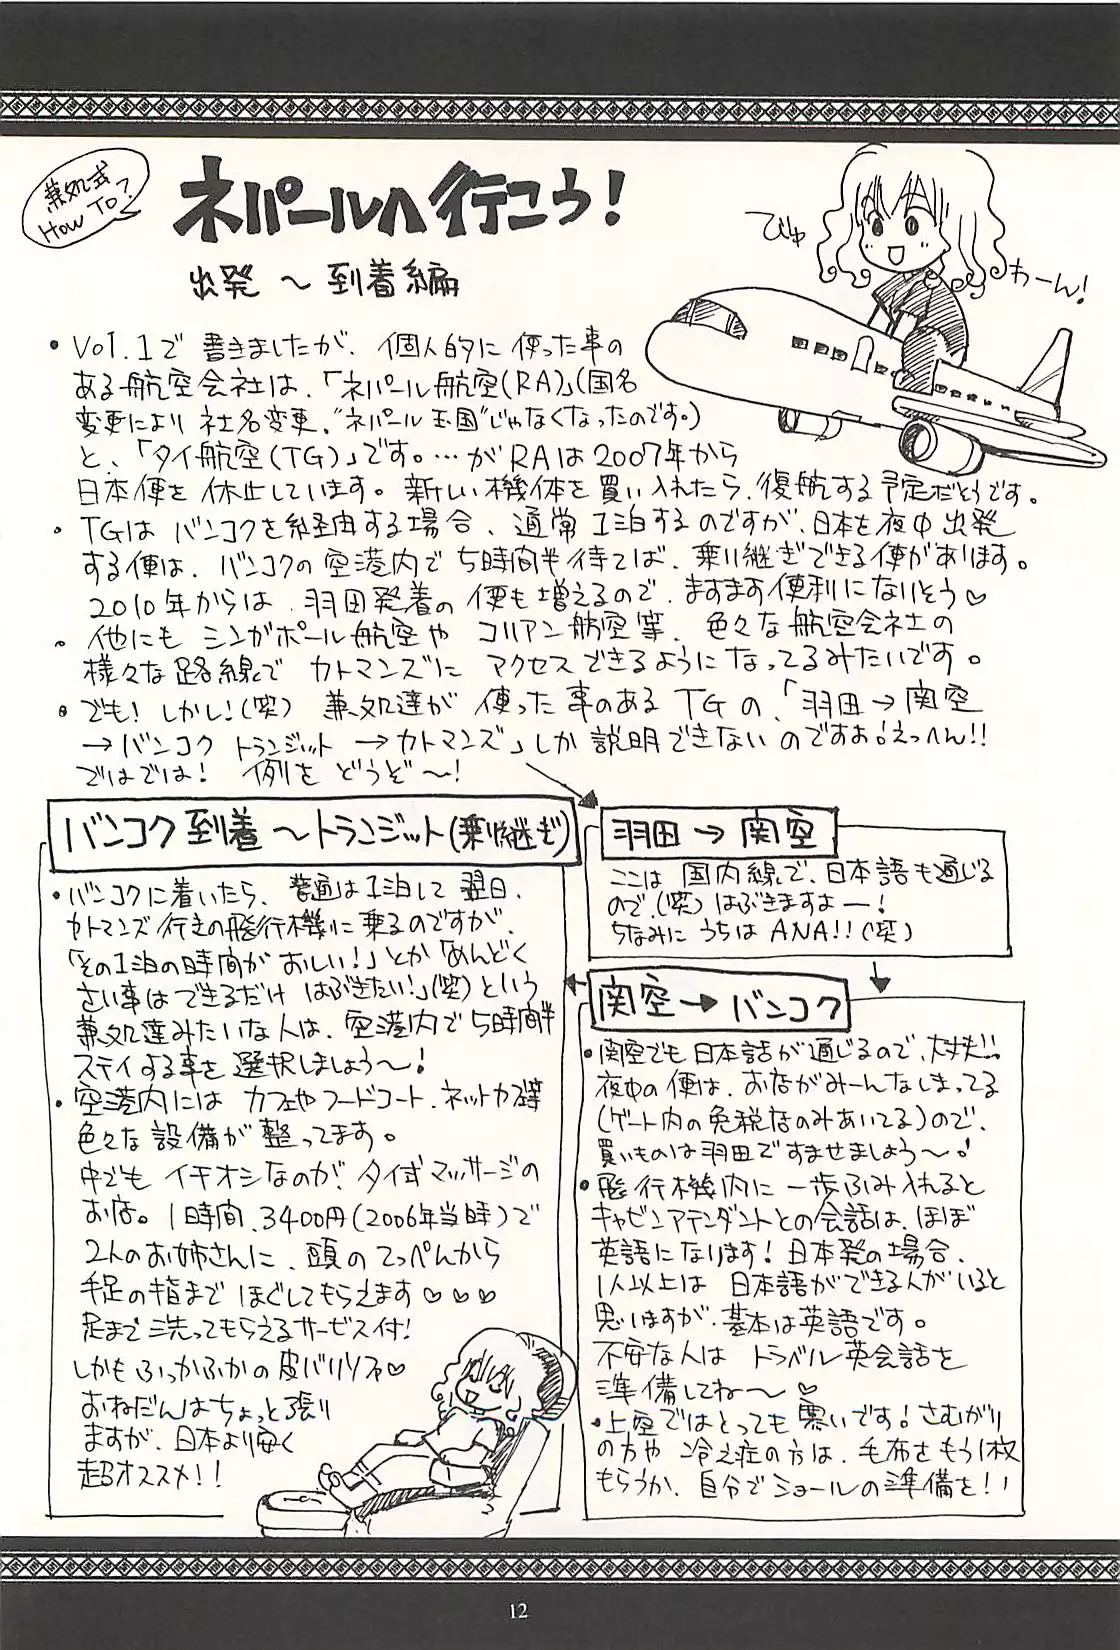 兼処式
HOW TO?
ネパールへ行こう!
出発 〜 到着編
びゅ
わーん!
• Vol.1で 書きましたが、個人的に使った事の
ある航空会社は、「ネパール航空(RA)」(国名
変更により 社名変更。"ネパール王国"じゃなくなったのです。)
と、「タイ航空(TG)」です。…がRAは2007年から
日本便を休止しています。新しい機体を買い入れたら、復航する予定だそうです。
• TGは バンコクを経由する場合、通常1泊するのですが、日本を夜中出発
する便は、バンコクの空港内で5時間半待てば、乗り継ぎできる便があります。
2010年からは、羽田発着の便も増えるので、ますます便利になりそう♡
• 他にも シンガポール航空や コリアン航空等、色々な航空会社の
様々な路線で カトマンズに アクセスできるようになってるみたいです。
• でも!しかし!(笑) 兼処達が 使った事のある TGの、「羽田→関空
→バンコク トランジット →カトマンズ」しか説明できないのですお!えっへん!!
ではでは! 例を どうぞ〜!
羽田 → 関空
ここは 国内線で、日本語も通じる
ので、(笑) はぶきますよー!
ちなみに うちは ANA!!(笑)
関空 → バンコク
• 関空でも 日本語が通じるので、大丈夫!!
夜中の便は、お店がみーんなしまってる
(ゲート内の免税店のみあいてる)ので、
買いものは羽田ですませましょう〜!
• 飛行機内に 一歩ふみ入れると
キャビンアテンダントとの会話は、ほぼ
英語になります! 日本発の場合、
1人以上は 日本語ができる人がいると
思いますが、基本は英語です。
不安な人は トラベル英会話を
準備してね〜♡
• 上空ではとっても寒いです! さむがり
の方や 冷え症の方は、毛布をもう1枚
もらうか、自分でショールの準備を!!
バンコク到着 〜トランジット(乗り継ぎ)
• バンコクに着いたら、普通は1泊して 翌日、
カトマンズ行きの飛行機に乗るのですが、
「その1泊の時間が おしい!」とか「めんどく
さい事はできるだけ はぶきたい!」(笑)という
兼処達みたいな人は、空港内で5時間半
ステイする事を選択しましょう〜!
• 空港内には カフェやフードコート、ネットカフェ等
色々な設備が整ってます。
中でも イチオシなのが、タイ式マッサージの
お店。1時間、3400円(2006年当時)で
2人のお姉さんに、頭のてっぺんから
手足の指まで ほぐしてもらえます♡♡♡
足まで 洗ってもらえるサービス付!
しかもふっかふかの皮バリソファ♡
おねだんはちょっと張り
ますが、日本より安く
超オススメ!!
12